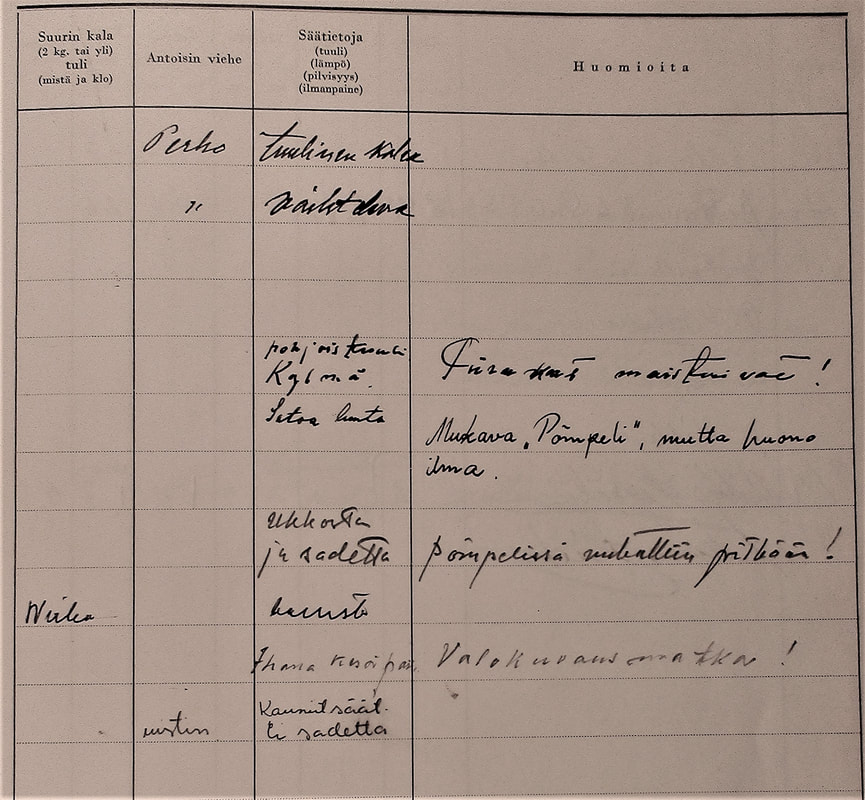 Suurin kala
(2 kg. tai yli)
tuli
(mistä ja klo)
Antoisin viehe
Säätietoja
(tuuli)
(lämpö)
(pilvisyys)
(ilmanpaine)
Huomioita
Perho
tuulinen
"
pohjoistuuli
Kylmä.
Satoa lunta
maistuivat!
Mukava „Pömpeli", mutta huono
ilma.
Ukkosta
ja sadetta
Pömpelissä nukuttiin pitkään!
kaunista
Ihana kesäpäi
Valokuvausmatka!
uistin
Kauniit säät.
Ei sadetta